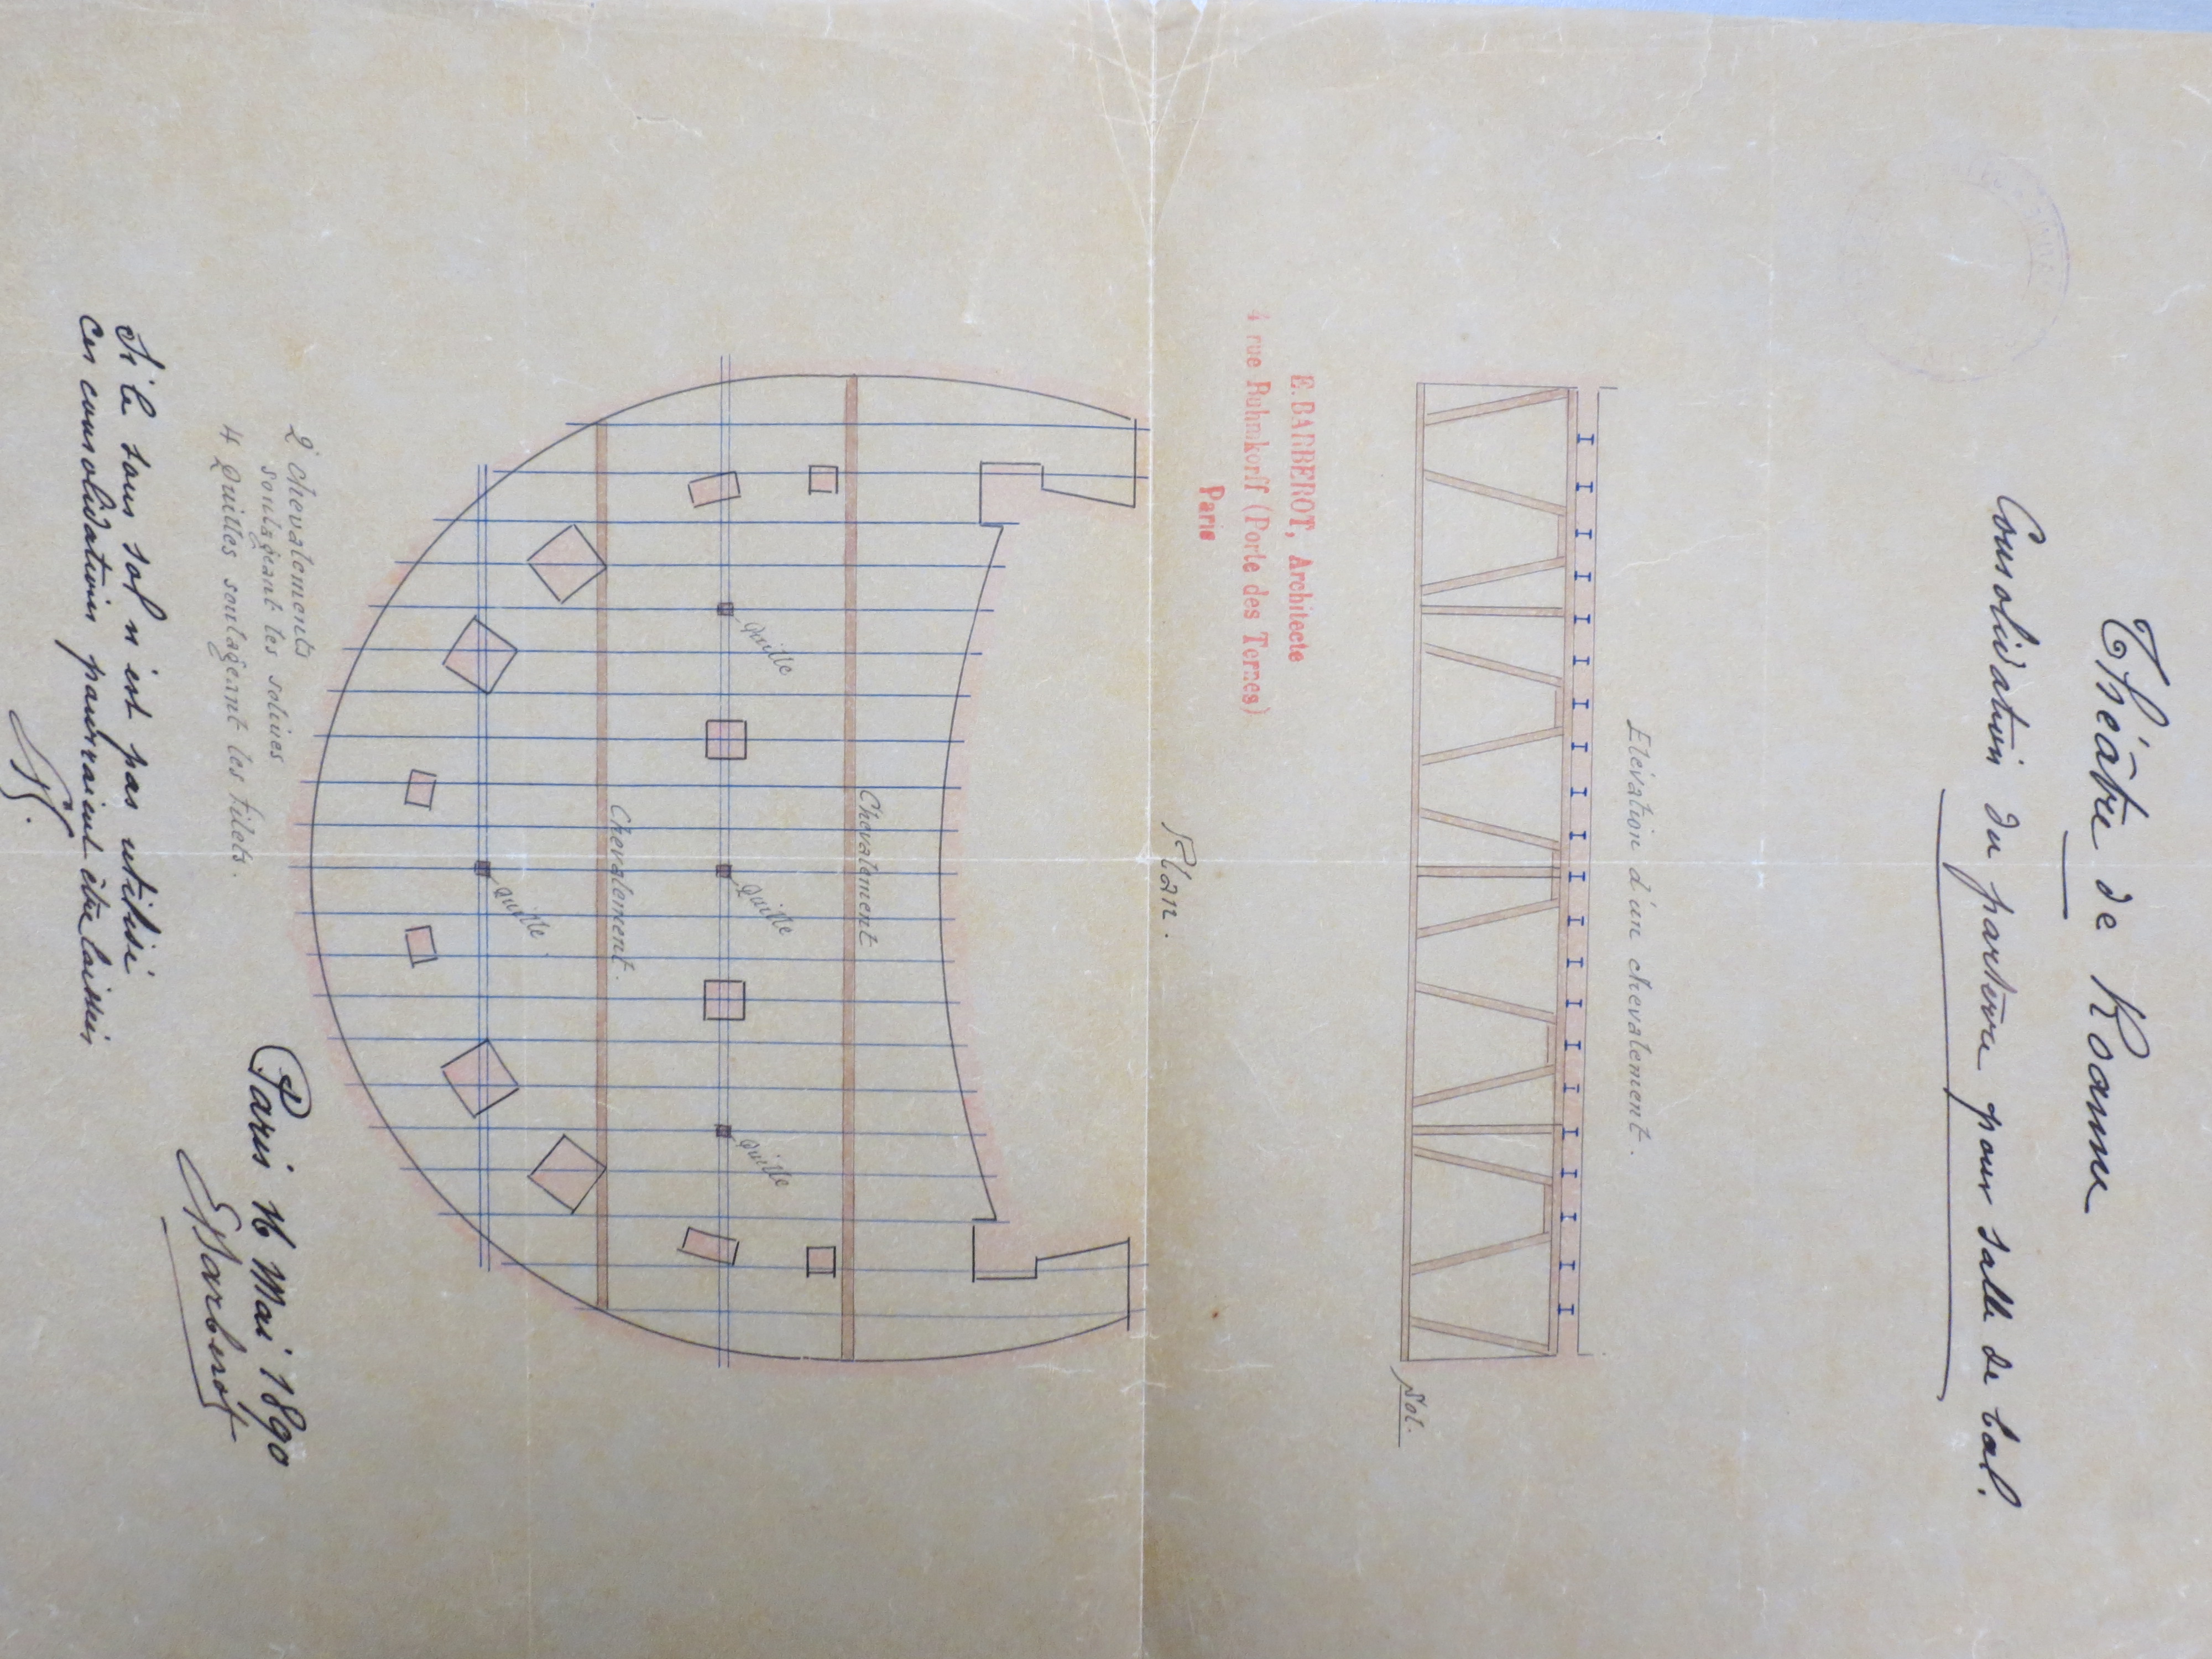 Théâtre de Roanne
Consolidation du parterre pour salle de bal.
Elévation d'un chevalement.
Sol.
E. BARBEROT, Architecte
4 rue Ruhmkorff (Porte des Ternes)
Paris
Plan.
Chevalement
Quille
Quille
Quille
Chevalement.
Quille
2 chevalements
soulageant les solives
4 Quilles soulageant les filets.
Paris 16 Mai 1890
EBarberot
Si le sous sol n'est pas utilisé
ces consolidations pourraient être laissées
EB.